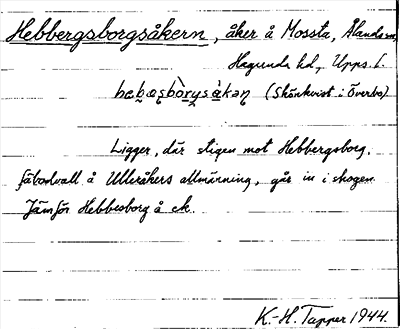 Hebbergsborgsåkern, åker å Mossta, Ålands sn,
Hagunda hd, Upps. l.
(Skönkvist i Överbo)
Ligger, där stigen mot Hebbergsborg,
fäbodvall å Ulleråkers allmänning, går in i skogen
Jämför Hebbesborg å ek.
K.-H. Tapper 1944.